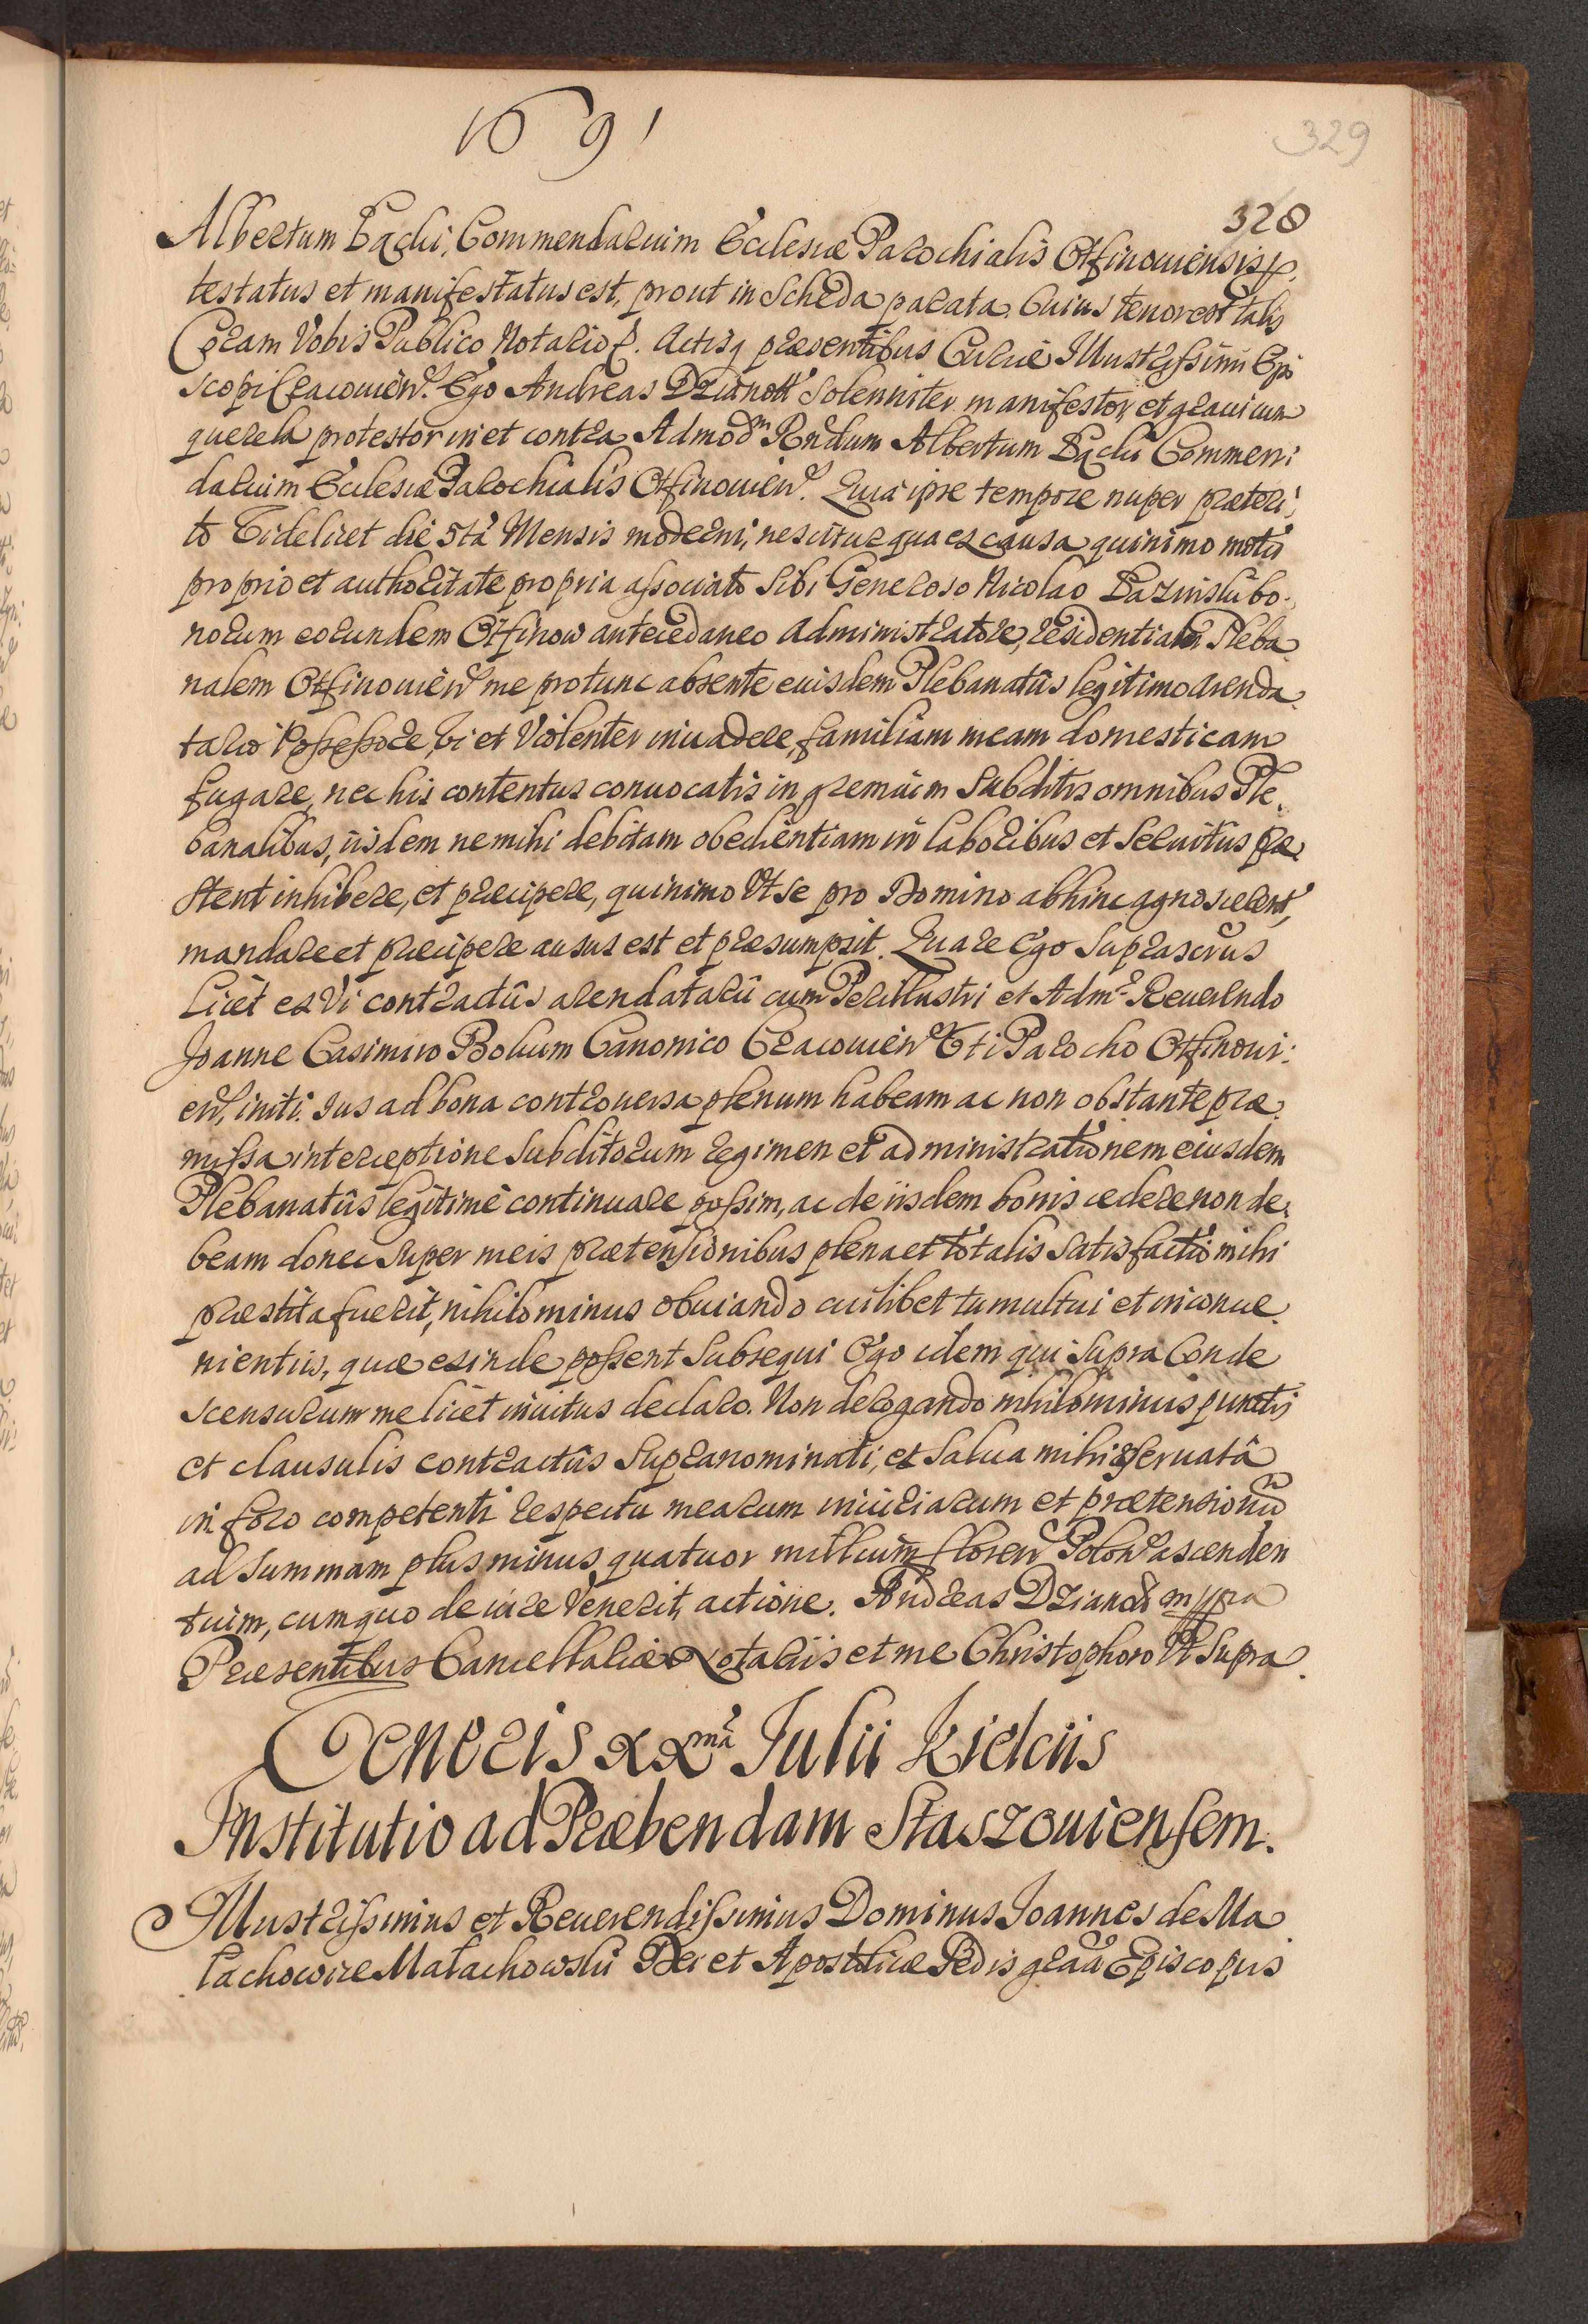 1691
329
328
Albertum Bąchi, Commendarium Ecclesiæ Parochialis Otfinouiensis p.
testatus et manifestatus est, prout in Scheda parata. Cuius tenor est talis
Coram Vobis Publico Notario p. Actisq præsentibus Curiæ Illustrissimi Epi
scopi Cracouien. Ego Andreas Dzianott Solenniter manifestor, et graui cum
querela protestor in et contra Admodm Rndum Albertum Bąchi Commen:
darium Ecclesiæ Parochialis Otfinouien. Quia ipse tempore nuper præteri:
to Videlicet die 5ta Mensis moderni, nescitur qua ex causa quinimo motu
proprio et authoritate propria associato Sibi Generoso Nicolao Bazinski bo:
norum eorundem Otfinow antecedaneo Administratore, residentiam Pleba
nalem Otfinouien me protunc absente eiusdem Plebanatûs legitimo Arenda
tario Possessore, Vi et Violenter inuadere, familiam meam domesticam
fugare, nec his contentus conuocatis in gremium Subditis omnibus Ple,
banalibus, iisdem ne mihi debitam obedientiam in laboribus et Seruitus præ
stent inhibere, et præcipere, quinimo Vt se pro Domino abhinc agnoscerent,
mandare et præcipere ausus est et præsumpsit. Quare Ego Suprascrus
Licèt ex Vi contractûs arendatarii cum Perillustri et Admo Reuerendo
Joanne Casimiro Bokum Canonico Cracouien Eti Parocho Otfinoui:
en, initi. Ius ad bona controuersa plenum habeam ac non obstante præ
missa interceptione Subditorum regimen et administrationem eiusdem
Plebanatûs legitimè continuare possim, ac de iisdem bonis cedere non de,
beam donec Super meis prætensionibus plena et totalis Satisfactio mihi
præstita fuerit, nihilominus obuiando cuilibet tumultui et inconue
nientiis, quæ exinde possent Subsequi Ego idem qui Supra Conde
scensurum me licèt inuitus declaro. Non derogando nihilominus punctis
et clausulis contractûs Supranominati, et Salua mihi reseruatâ
in foro competenti respectu mearum iniuriarum et prætensionu
ad Summam plus minus quatuor millium floren Polon ascenden
tium, cum quo de iure Venerit, actione. Andreas Dzianott mppra
Præsentibus Cancellariæ Notariis et me Christophoro Vt Supra.
Veneris XXma Julii Kielciis
Institutio ad Præbendam Staszouiensem.
Illustrissimus et Reuerendissimus Dominus Joannes de Ma
łachowice Małachowski Dei et Apostolicæ Sedis graâ Episcopus